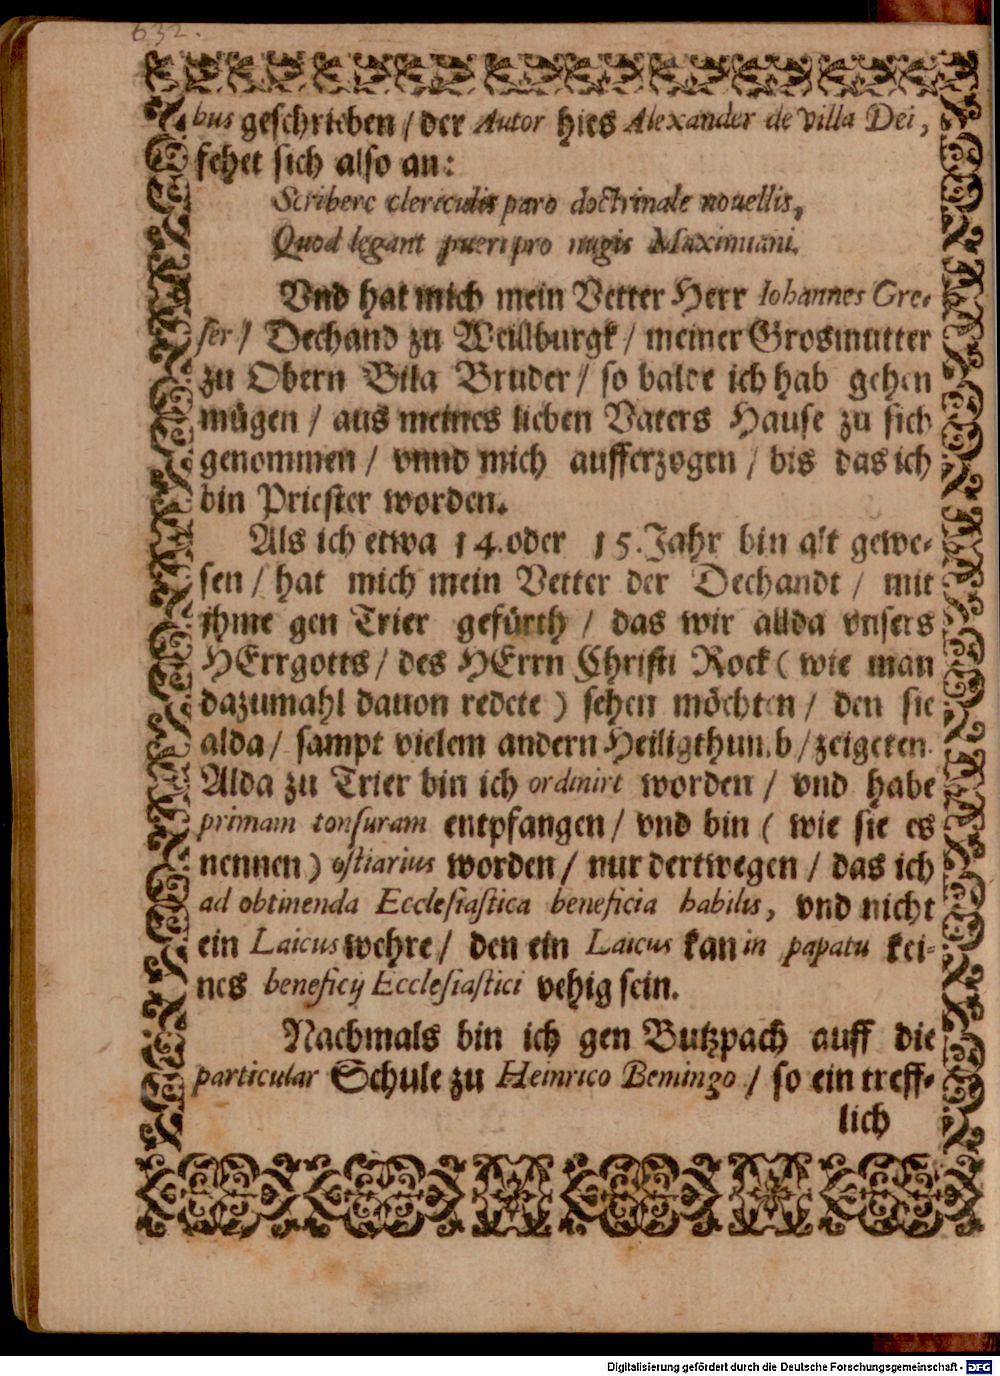 632.
bus geschrieben / der Autor hies Alexander de Villa Dei,
fehet sich also an:
Scribere clericulis paro doctrinale nouellis,
Quod legant pueri pro nugis Maximiani.
Vnd hat mich mein Vetter Herr Iohannes Gre-
ser / Dechand zu Weillburgk / meiner Grosmutter
zu Obern Bila Bruder / so balde ich hab gehen
mügen / aus meines lieben Vaters Hause zu sich
genommen / vnnd mich aufferzogen / bis das ich
bin Priester worden.
Als ich etwa 14. oder 15. Jahr bin alt gewe-
sen / hat mich mein Vetter der Dechandt / mit
ihme gen Trier gefürth / das wir allda vnsers
HErrgotts / des HErrn Christi Rock ( wie man
dazumahl dauon redete ) sehen möchten / den sie
alda / sampt vielem andern Heiligthumb / zeigeten.
Alda zu Trier bin ich ordinirt worden / vnd habe
primam tonsuram entpfangen / vnd bin ( wie sie es
nennen ) ostiarius worden / nur dertwegen / das ich
ad obtinenda Ecclesiastica beneficia habilis, vnd nicht
ein Laicus wehre / den ein Laicus kan in papatu kei-
nes beneficij Ecclesiastici vehig sein.
Nachmals bin ich gen Butzpach auff die
particular Schule zu Heinrico Bemingo / so ein treff-
lich
Digitalisierung gefördert durch die Deutsche Forschungsgemeinschaft - DFG